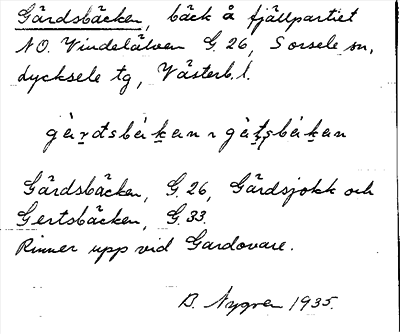 Gärdsbäcken, bäck å fjällpartiet
NO. Vindelälven G. 26, Sorsele sn,
Lycksele tg, Västerb. l.
gärdsbäkan ~ gäţşbäkan
Gärdsbäcken, G. 26, Gärdsjokk och
Gertsbäcken, G. 33.
Rinner upp vid Gardovare.
B. Nygren 1935.